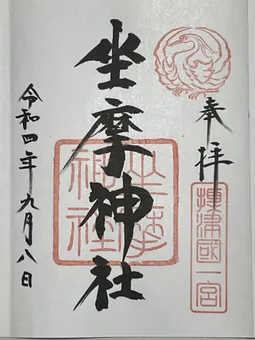 奉拝
攝津國一宮
坐摩神社
坐摩神社
令和四年九月八日